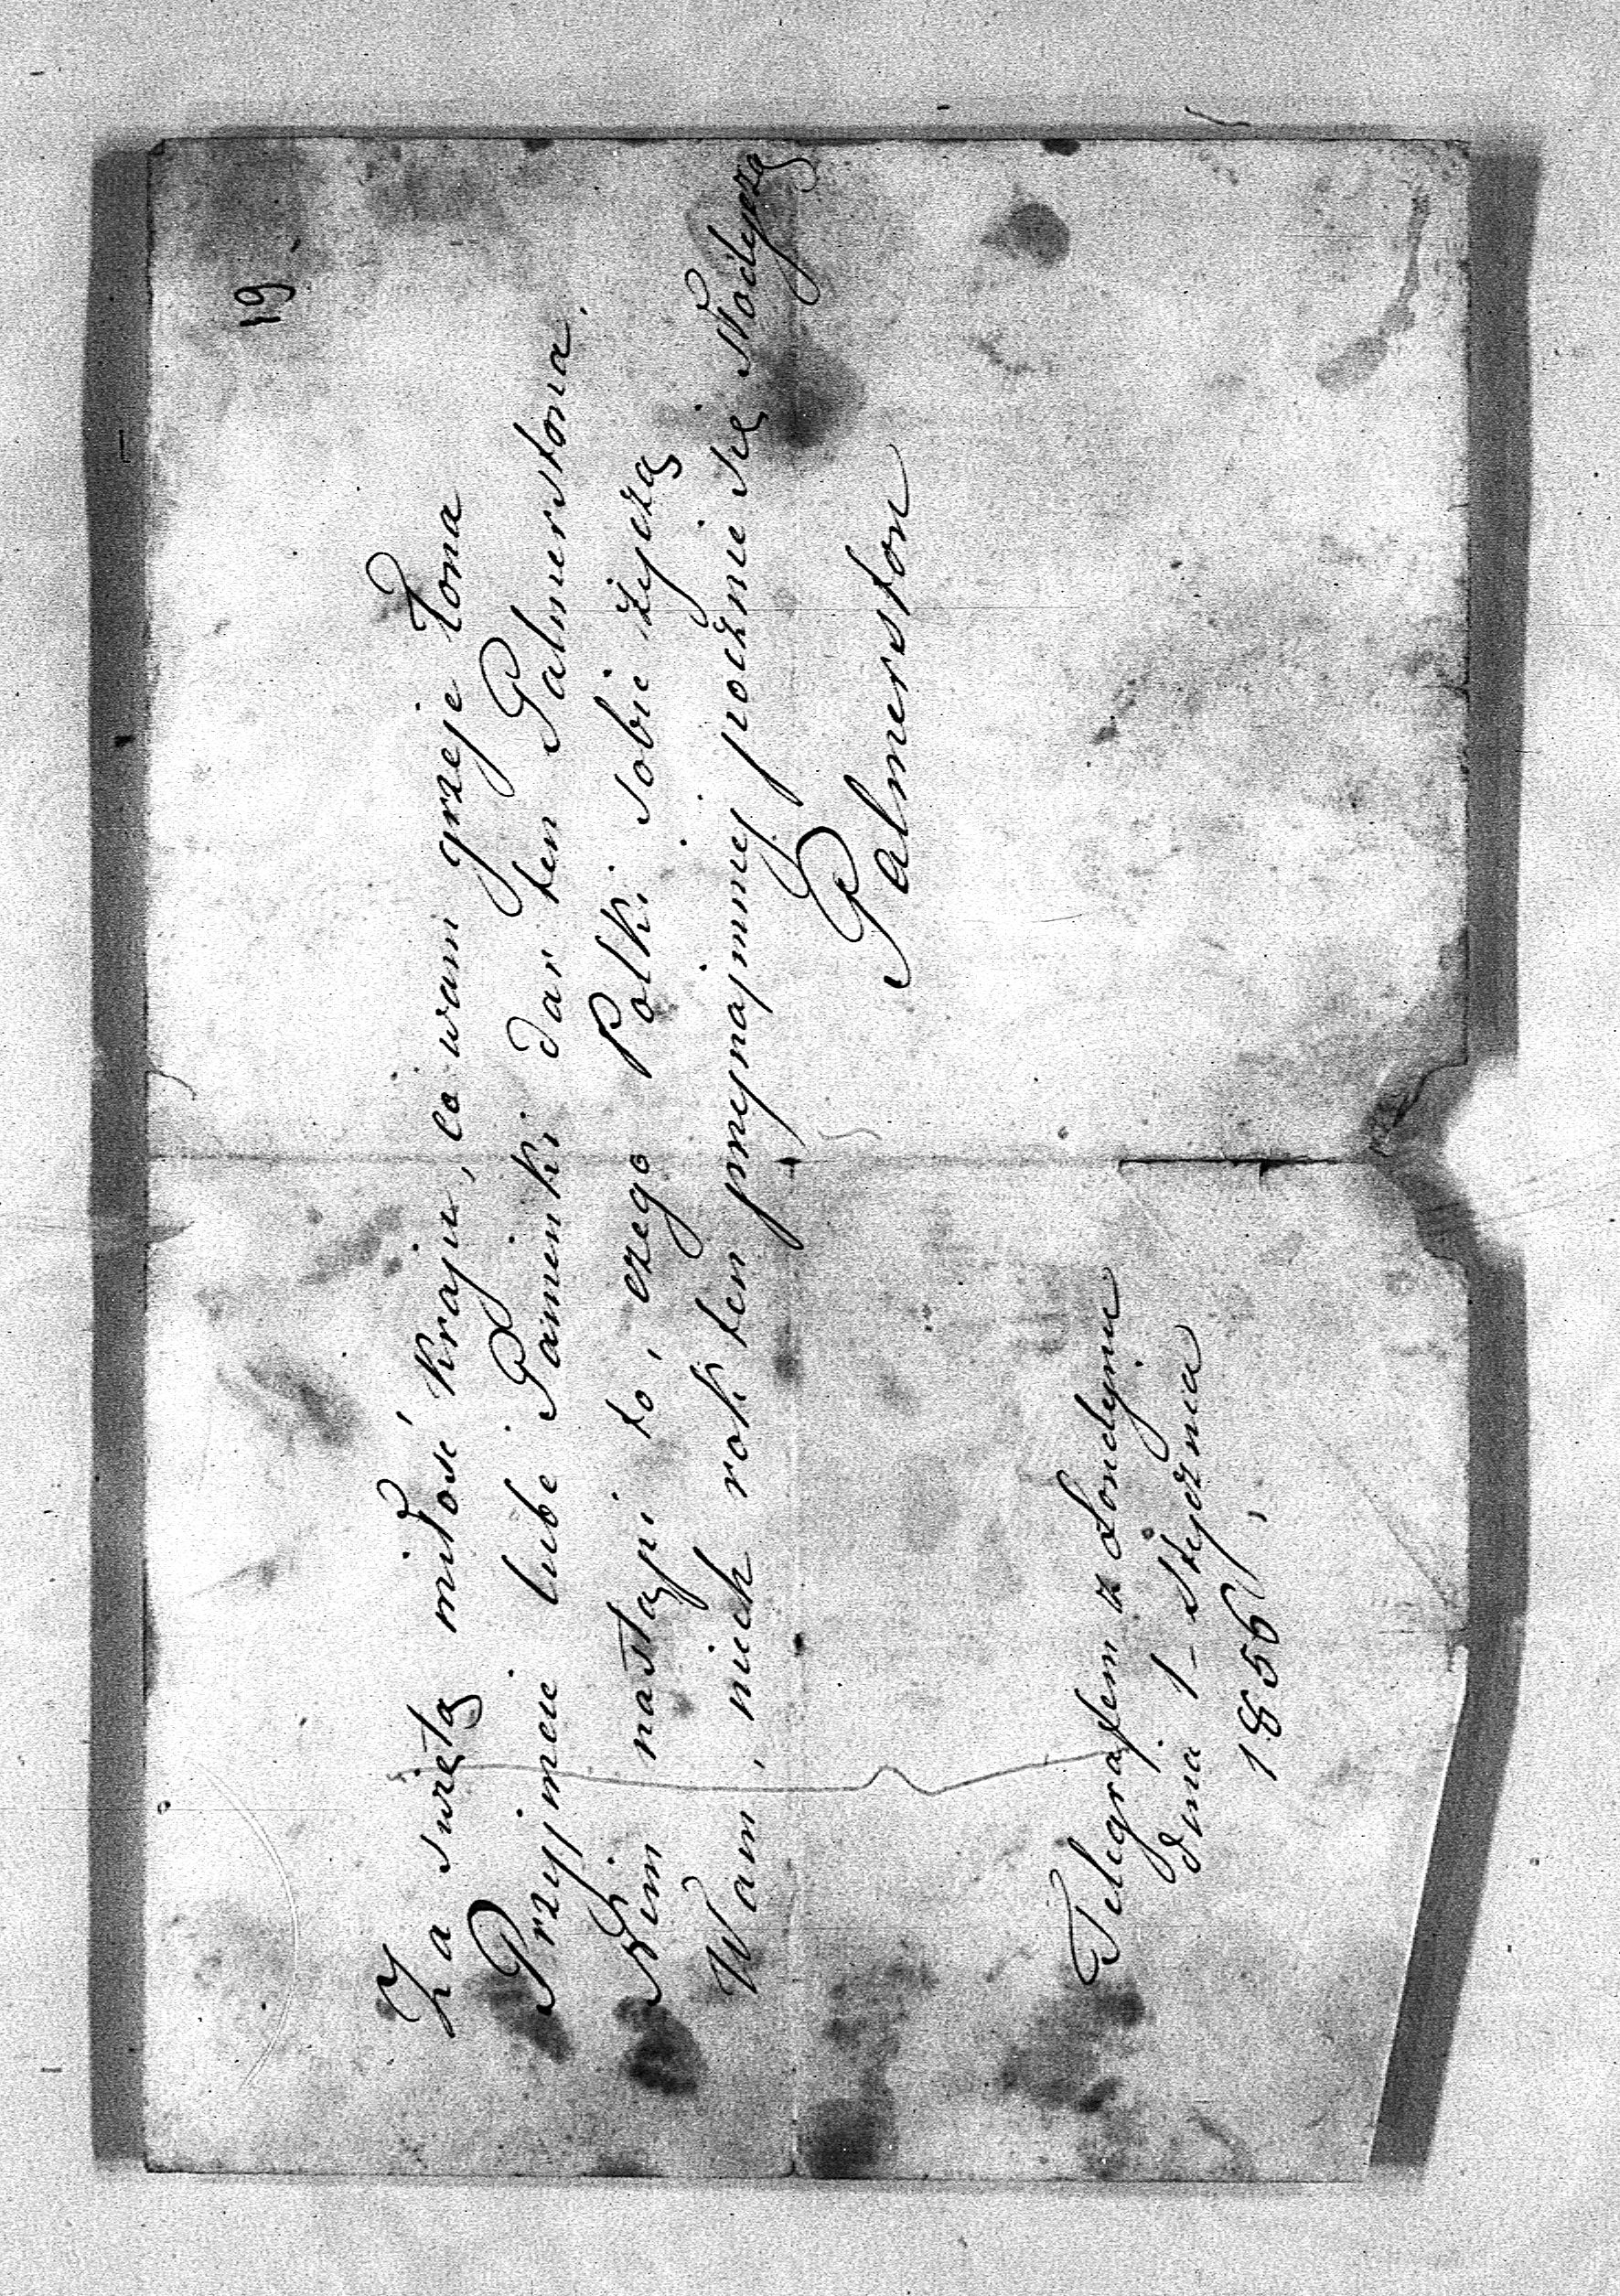 19.
Za swiętą miłość kraju, co wam grzeje łona
Przyjmcie lube Panienki dar ten Palmerstona.
Nim nastąpi to, czego Polki sobie życzą
Wam, niech rok ten przynajmniej pocznie się słodyczą
Palmerston
Telegrafem z Londynu
dnia 1- Stycznia
1856,